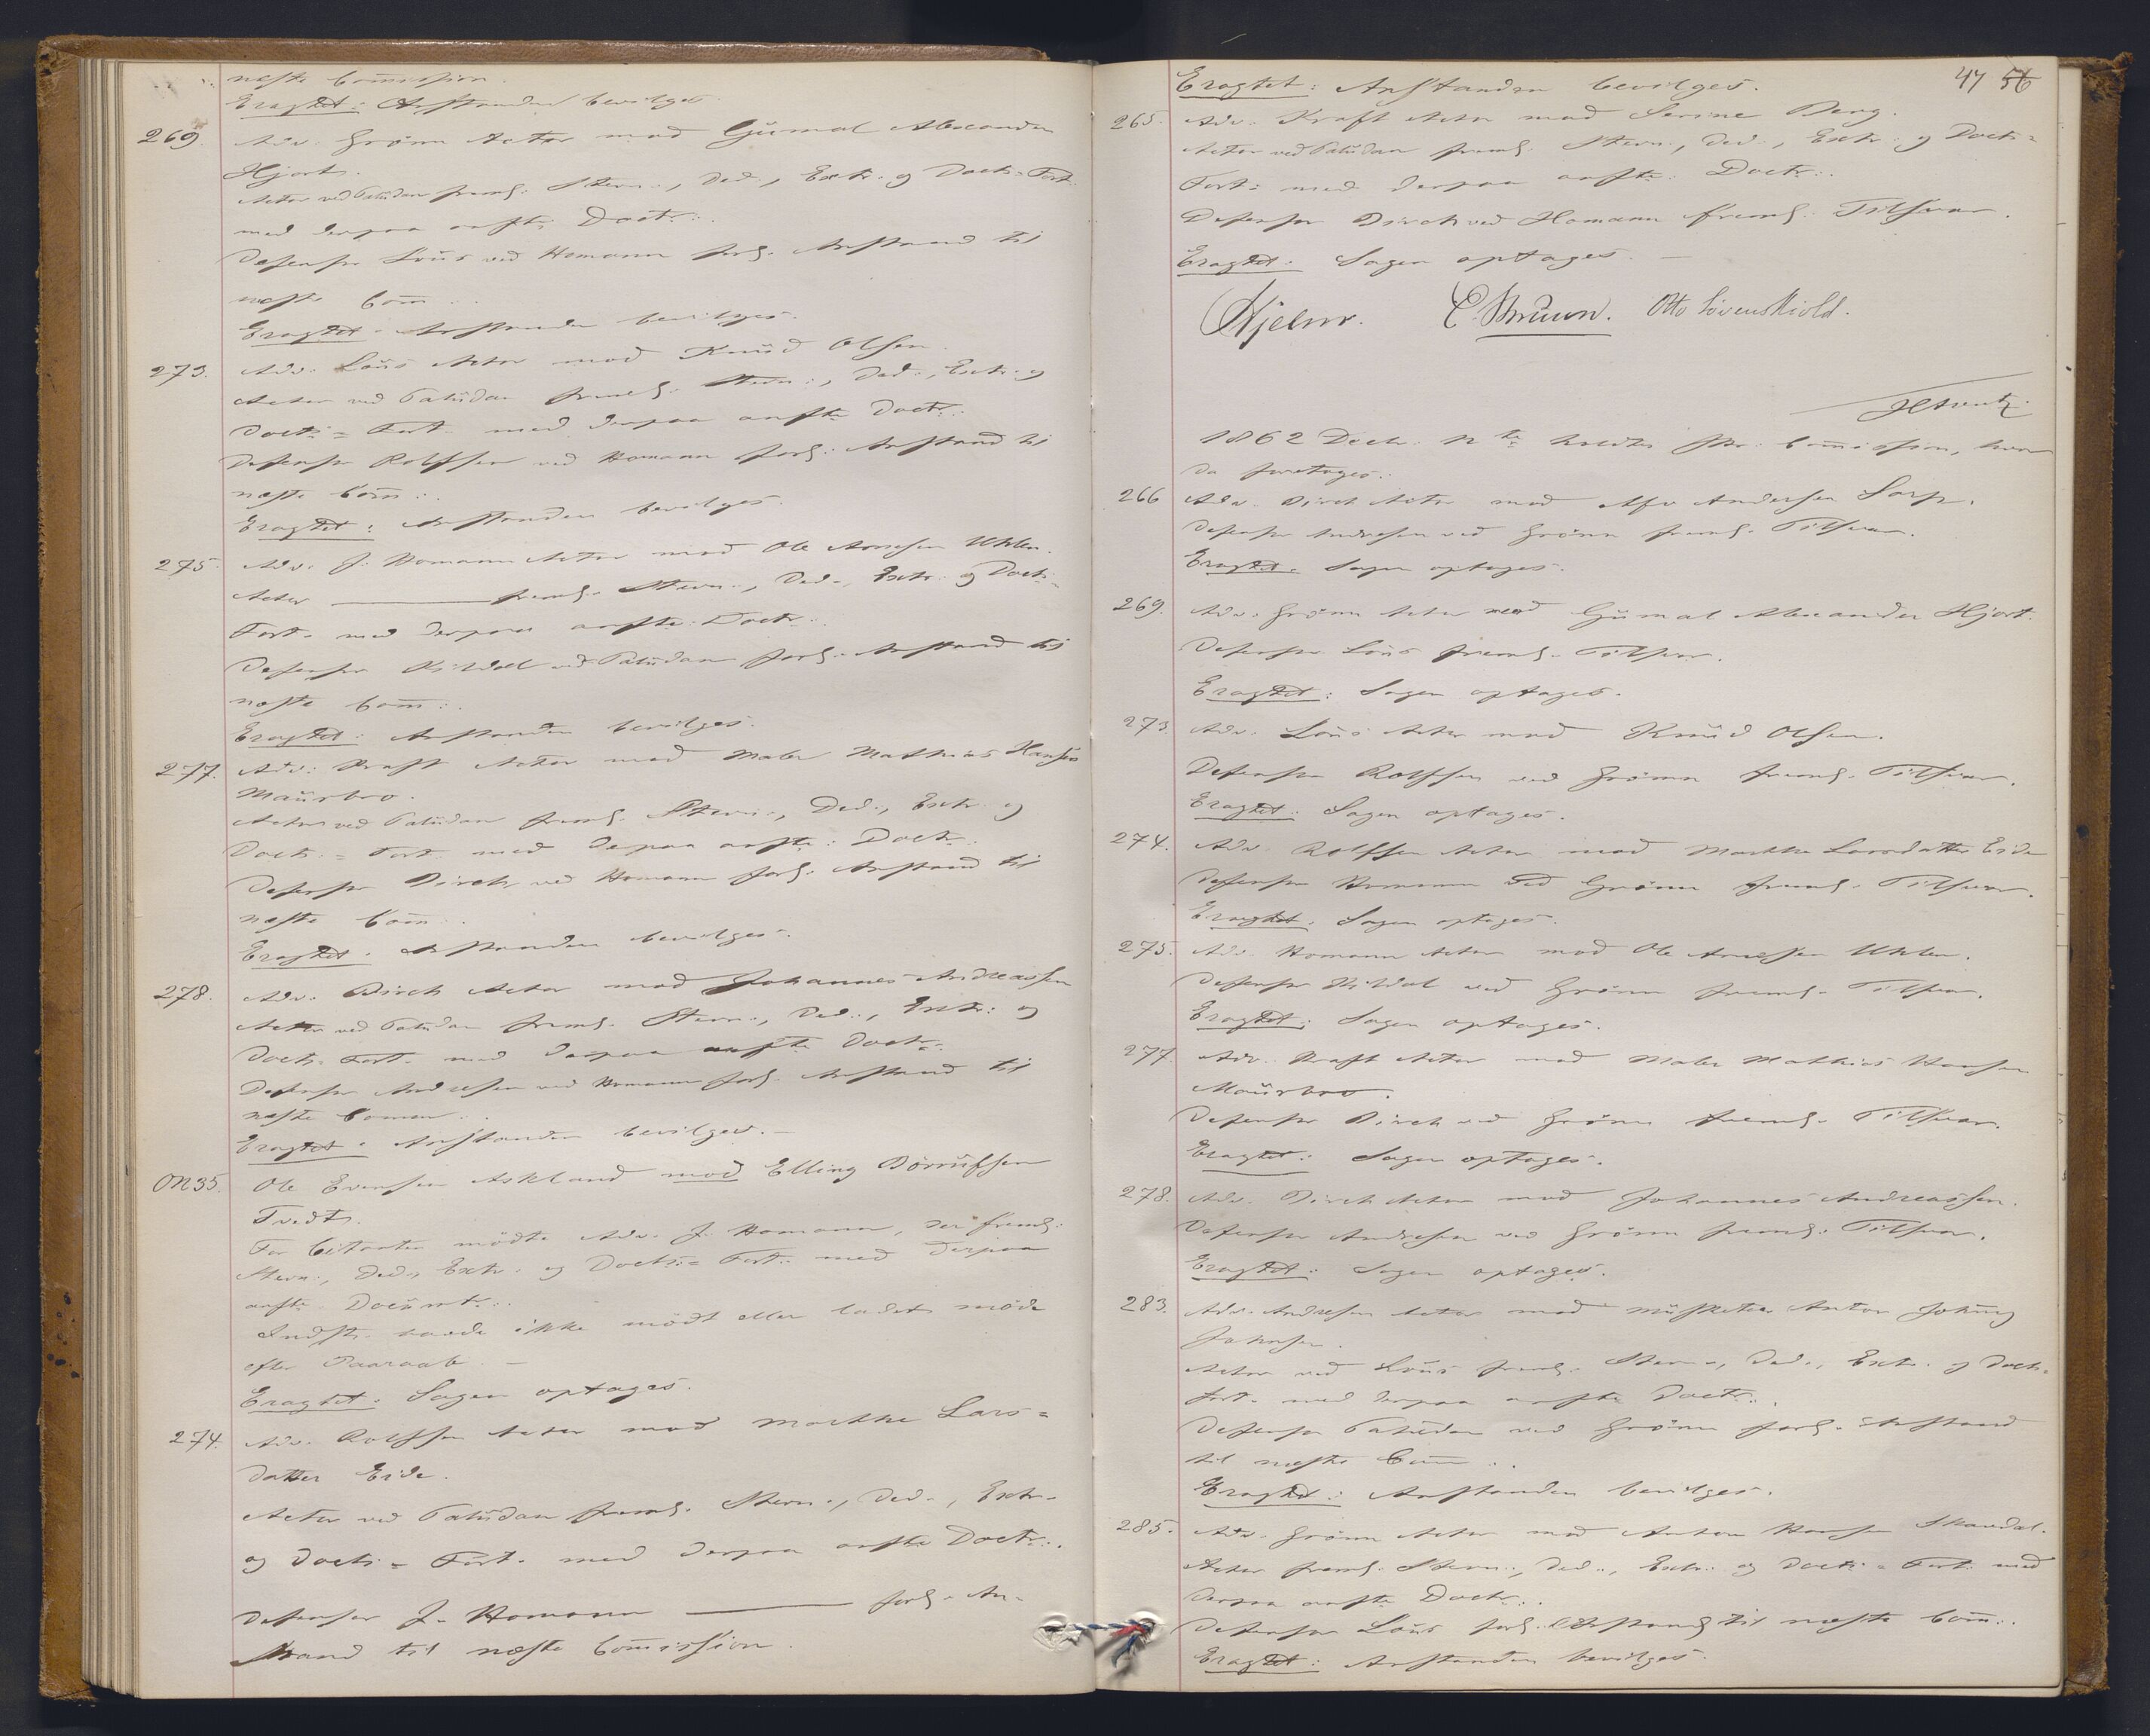 næste Commission.
Eragtet: Anstanden bevilges.
269. Adv. Grönn Actor mod Gumal Alexander
Hjort.
Actor ved Paludan freml. Stevn., Ded., Extr. og Docts-Fort.
med derpaa anfte Doctr.
Defensor Lous ved Homann forl. Anstand til
næste Comm:.
Eragtet: Anstanden bevilges.
273. Adv. Lous Actor mod Knud Olsen.
Actor ved Paludan freml. Stevn:, Ded:, Extr: og
Docts=Fort. med derpaa anfte Doctr:.
Defensor Rolfsen ved Homann forl. Anstand til
næste Comm:.
Eragtet: Anstanden bevilges.
275. Adv. J. Homann Actor mod Ole Arnesen Uhlen.
Actor ——— freml. Stevn:, Ded., Extr. og Docts-
Fort. med derpaa anfte: Doctr:.
Defensor Kildal ved Paludan forl. Anstand til
næste Comm:.
Eragtet: Anstanden bevilges.
277. Adv: Kraft Actor mod Maler Mathias Hansen
Maursbro.
Actor ved Paludan freml. Stevn:, Ded., Extr. og
Docts.=Fort. med derpaa anfte: Doctr:.
Defensor Birch ved Homann forl. Anstand til
næste Comm:.
Eragtet: Anstanden bevilges.
278. Adv. Birch Actor mod Johannes Andreassen
Actor ved Paludan freml. Stevn:, Ded:, Extr: og
Docts-Fort. med derpaa anfte Doctr:
Defensor Andresen ved Homann forl. Anstand til
næste Comm:.
Eragtet: Anstanden bevilges.—
ON35. Ole Evensen Askland mod Elling Börrufsen
Tvedt.
For Citanten mödte Adv. J. Homann, der freml:
Stevn:, Ded:, Extr. og Docts:=Fort: med derpaa
anfte Documtr:.
Indst: havde ikke mödt eller ladet möde
efter Paaraab.—
Eragtet: Sagen optages.
274. Adv. Rolfsen Actor mod Marthe Lars=
datter Eide.
Actor ved Paludan freml. Stevn., Ded., Extr.
og Docts=Fort. med derpaa anfte Doctr:.
Defensor J. Homann ——— forl. An-
stand til næste Commission.
47 56
Eragtet: Anstanden bevilges.
265. Adv. Kraft Actor mod Serine Berg.
Actor ved Paludan freml. Stevn., Ded., Extr. og Docts=
Fort: med derpaa anfte: Doctr:.
Defensor Birch ved Homann freml. Tilsvar.
Eragtet: Sagen optages.—
Hjelm. C. Bruun. Otto Lövenskiold.
1862 Decbr. 12te holdtes Commission, hvor
da foretoges:
266 Adv. Birch Actor mod Andersen Sarp.
Defensor Andresen ved Grönn freml. Tilsvar.
Eragtet: Sagen optages.
269. Adv. Grönn Actor mod Gumal Alexander Hjort.
Defensor Lous freml. Tilsvar.
Eragtet: Sagen optages.
273 Adv. Lous Actor mod Knud Olsen.
Defensor Rolfsen ved Grönn freml. Tilsvar.
Eragtet: Sagen optages.
274. Adv. Rolfsen Actor mod Marthe Larsdatter Eide
Defensor Homann ved Grönn freml. Tilsvar.
Eragtet: Sagen optages.
275. Adv. Homann Actor mod Ole Arnesen Uhlen.
Defensor Kildal ved Grönn freml. Tilsvar.
Eragtet: Sagen optages.
277 Adv. Kraft Actor mod Maler Mathias Hansen
Maursbro.
Defensor Birch ved Grönn freml. Tilsvar.
Eragtet: Sagen optages.
278. Adv. Birch Actor mod Johannes Andreassen.
Defensor Andresen ved Grönn freml. Tilsvar.
Eragtet: Sagen optages.
283. Adv. Andresen Actor mod Musketeer Anton Johny
Johnsen.
Actor ved Lous freml. Stevn., Ded., Extr. og Docts-
Fort. med derpaa anfte Doctr:.
Defensor Paludan ved Grönn forl. Anstand
til næste Comm:.
Eragtet: Anstanden bevilges.
285. Adv. Grönn Actor mod Anton Hansen Skavdal.
Actor freml. Stevn:, Ded., Extr: og Docts=Fort. med
derpaa anfte Doctr:.
Defensor Lous forl. Anstand til næste Comm:.
Eragtet: Anstanden bevilges.